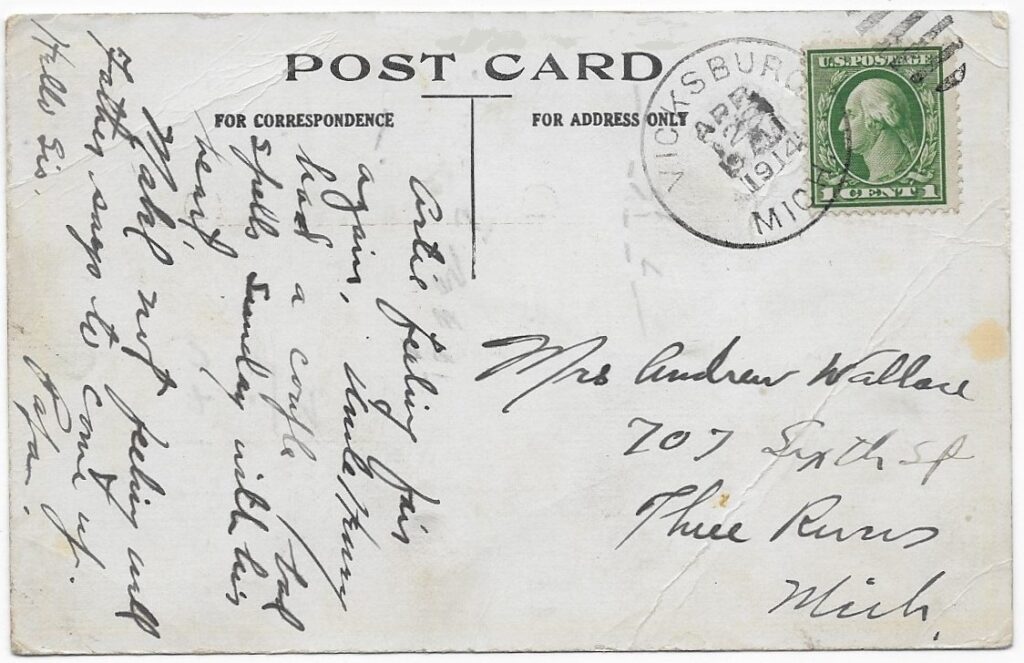 POST CARD
FOR CORRESPONDENCE
FOR ADDRESS ONLY
VICKSBURG
APR
1914
MICH.
U.S. POSTAGE
1 CENT 1
feeling fair
again. Uncle Henry
had a couple bad
spells Sunday with his
heart
Mabel not feeling well
Father says to come up.
Hello Sis.
Mrs Andrew Wallace
707 Sixth St
Three Rivers
Mich.